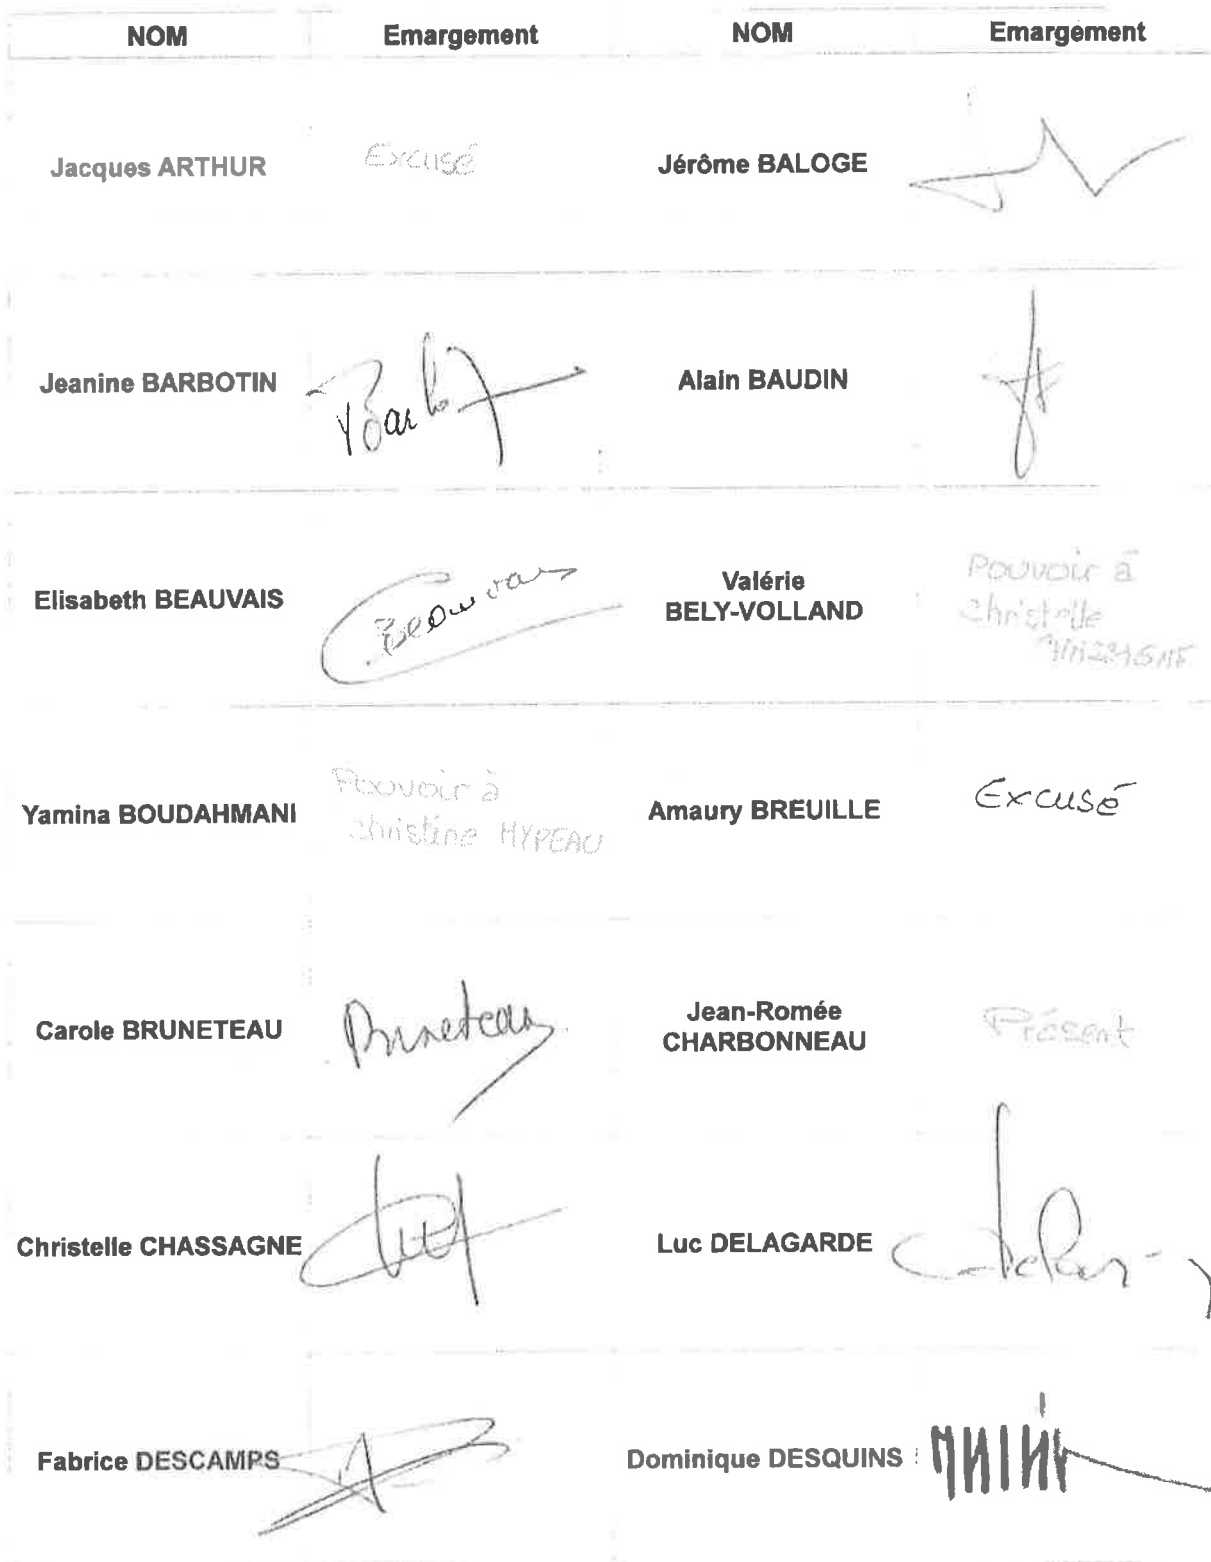 NOM Emargement NOM Emargement
Jacques ARTHUR Excusé Jérôme BALOGE
Jeanine BARBOTIN Barbotin Alain BAUDIN
Elisabeth BEAUVAIS Beauvais Valérie
BELY-VOLLAND Pouvoir à
Christelle
Yamina BOUDAHMANI Pouvoir à
Christine HYPEAU Amaury BREUILLE Excusé
Carole BRUNETEAU Bruneteau Jean-Romée
CHARBONNEAU Présent
Christelle CHASSAGNE Luc DELAGARDE
Fabrice DESCAMPS Dominique DESQUINS